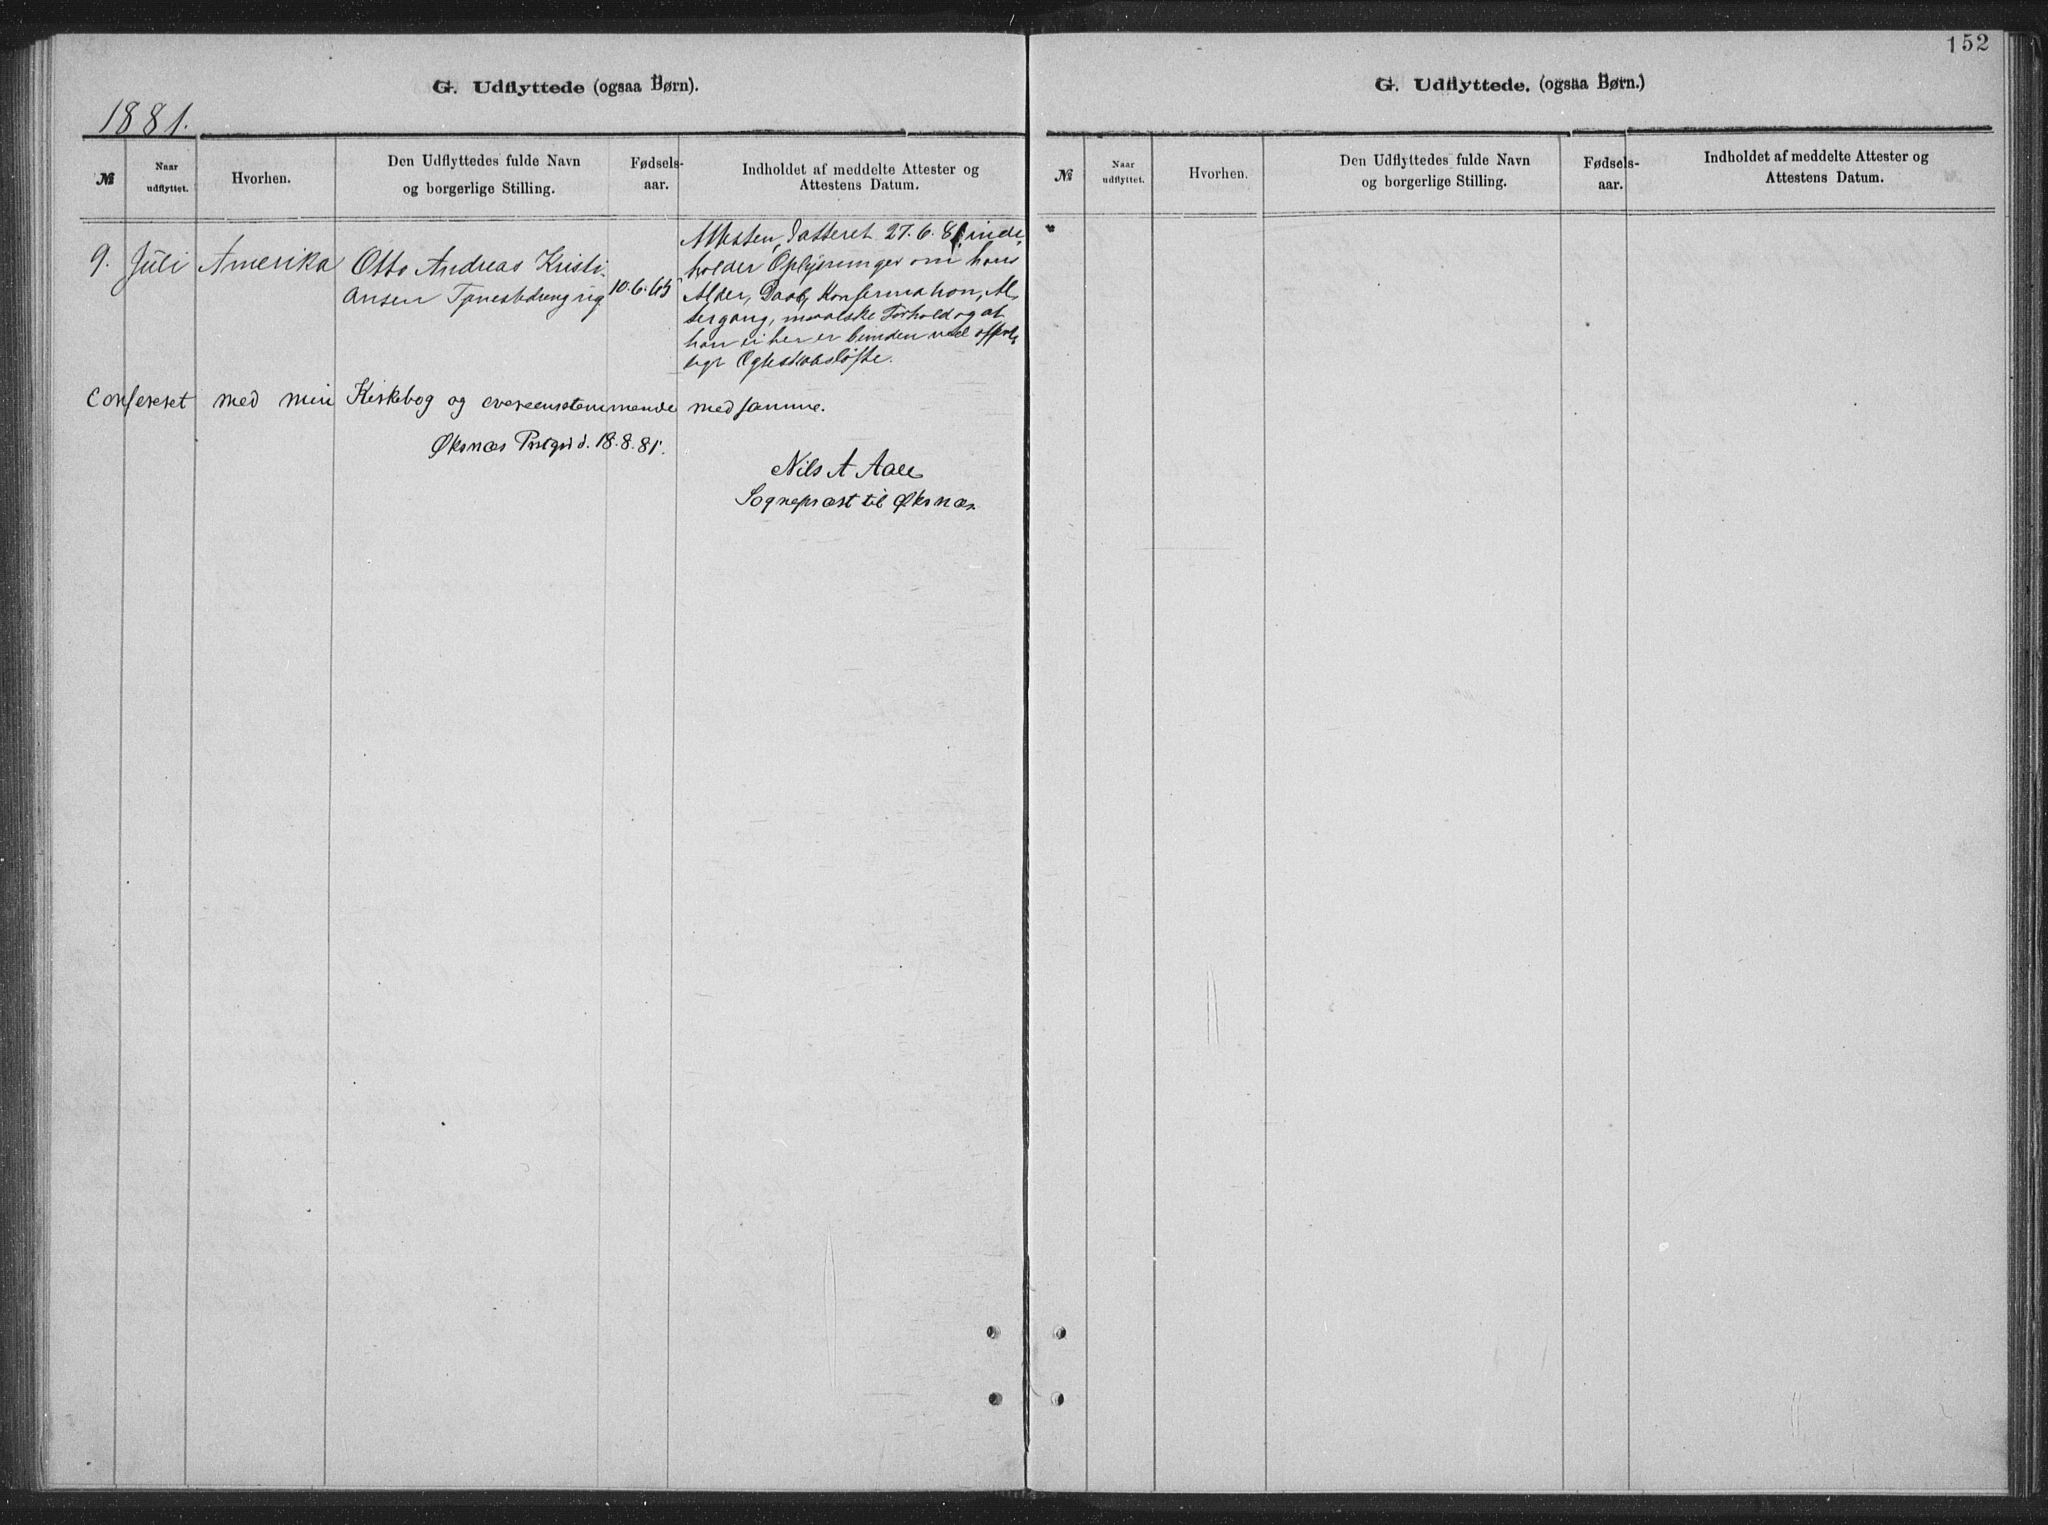 152
G. Udflyttede (ogsaa Børn).
1881.
№
Naar udflyttet.
Hvorhen.
Den Udflyttedes fulde Navn
og borgerlige Stilling.
Fødsels-
aar.
Indholdet af meddelte Attester og
Attestens Datum.
9. Juli Amerika Otto Andreas Kristi-
ansen 10.6.65
Attesten, datteret 27.6.81 inde-
holder Oplysninger om hans
Alder, Daab, Konfirmation, Al-
tergang, moralske Forhold og at
han ei her er bunden ved offent-
ligt Egteskabsløfte.
Confereret med min Kirkebog og overeensstemmende med samme.
Øksnæs Prstgrd. 18.8.81.
Nils A Aall
Sognepræst til Øksnæs
G. Udflyttede. (ogsaa Børn.)
№
Naar
udflyttet.
Hvorhen.
Den Udflyttedes fulde Navn
og borgerlige Stilling.
Fødsels-
aar.
Indholdet af meddelte Attester og
Attestens Datum.